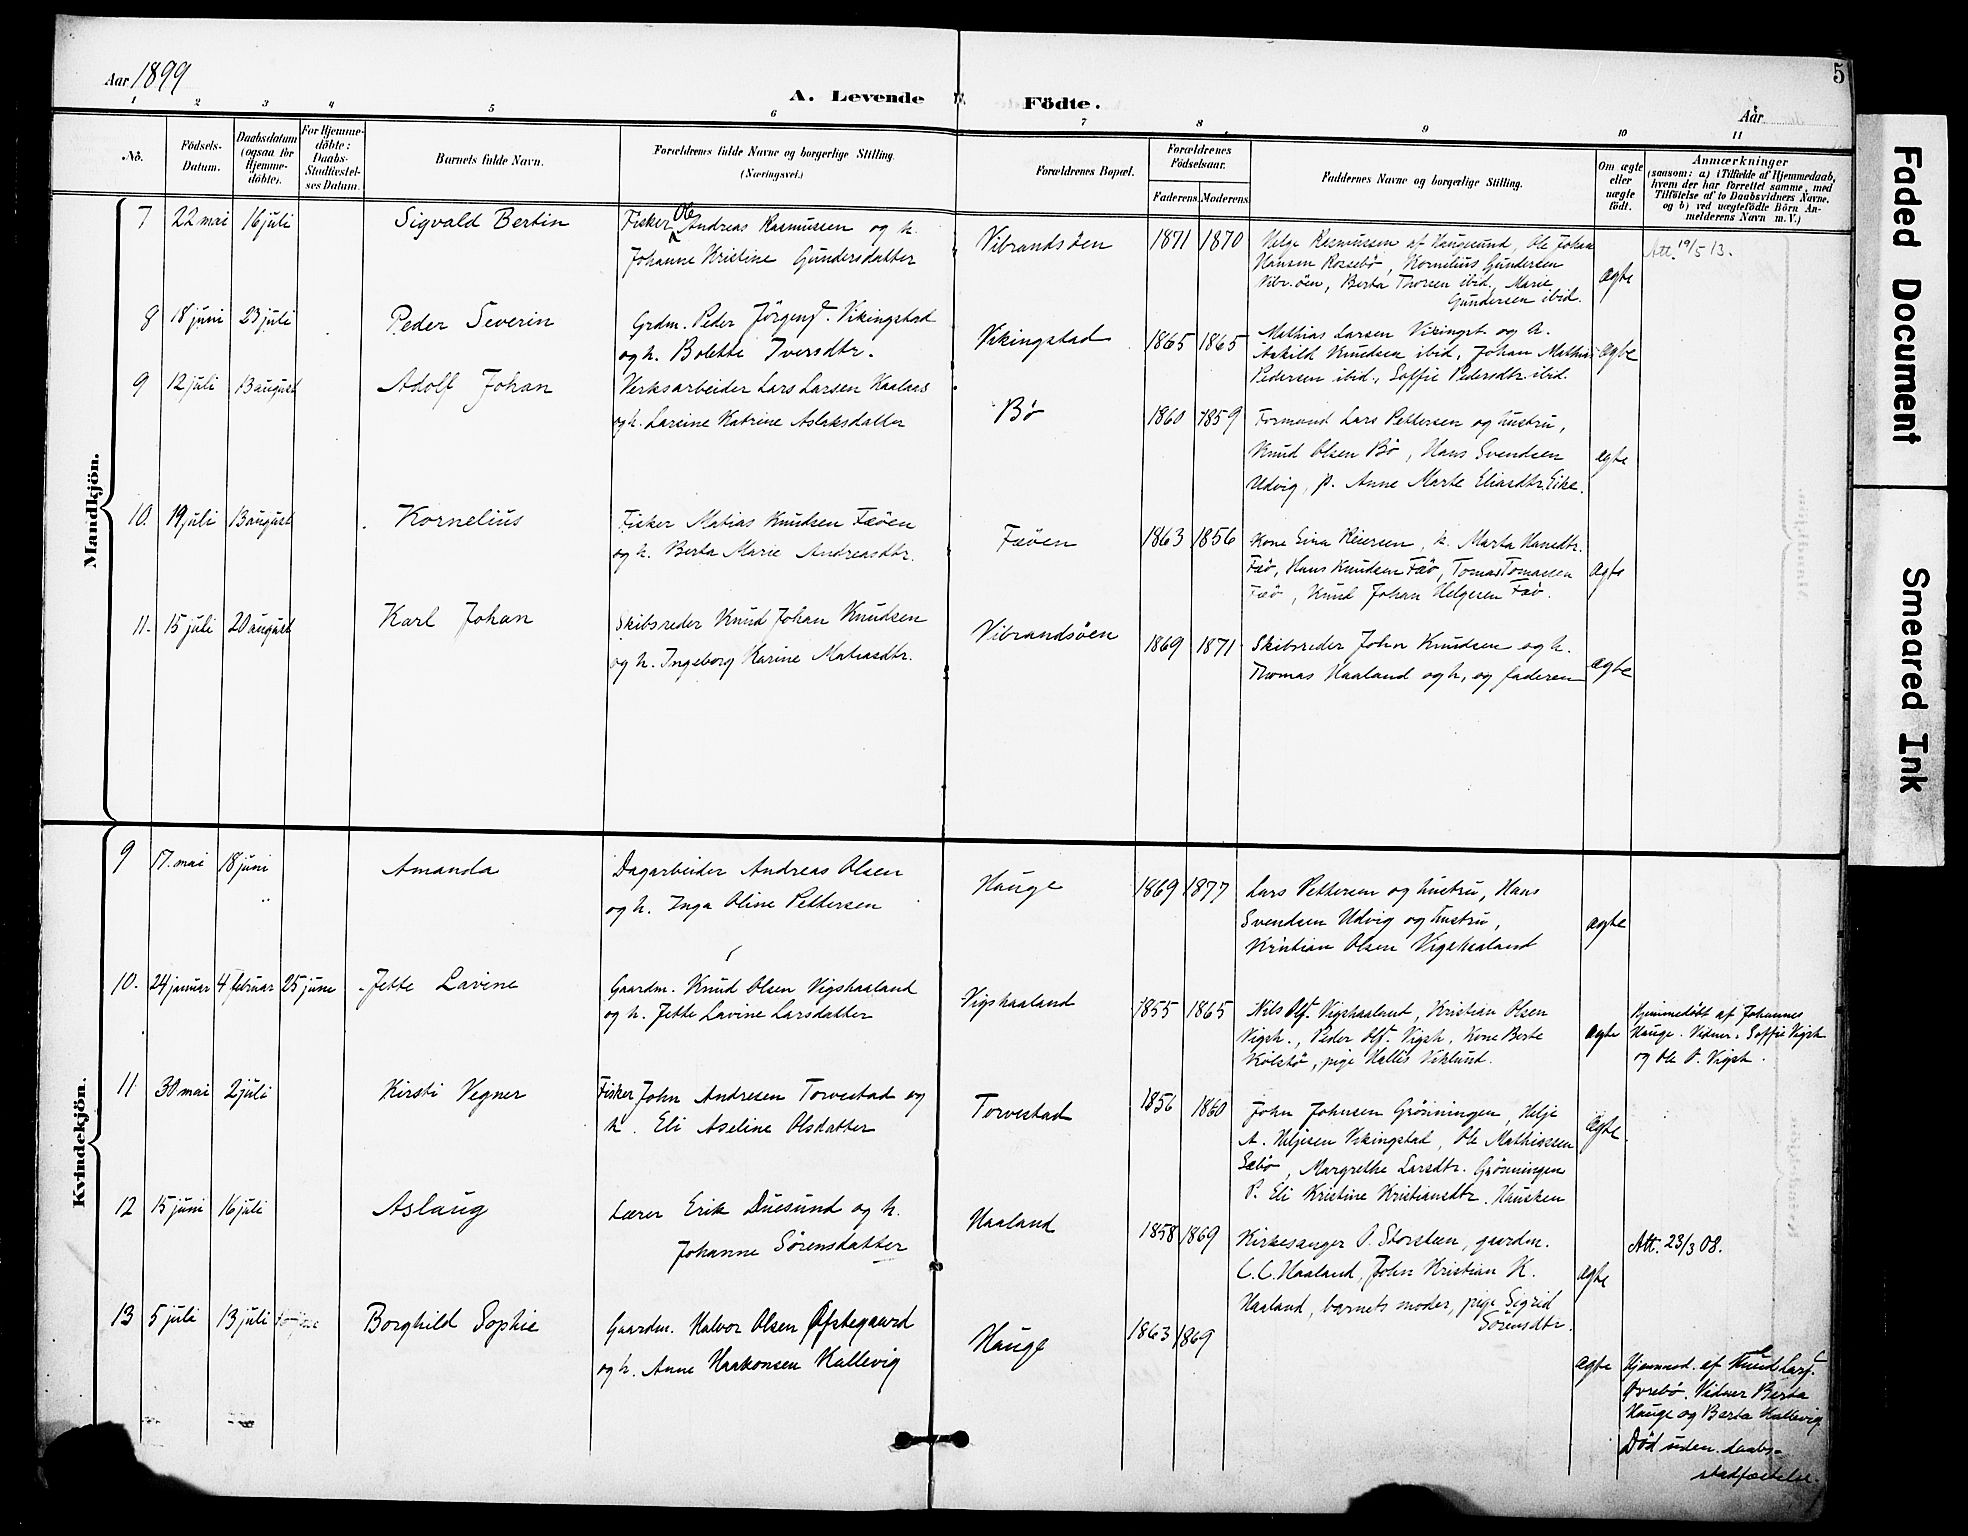 5
Aar 1899
A. Levende Födte.
Aar
1 2 3 4 5 6 7 8 9 10 11
No.
Födsels-Datum.
Daabsdatum (ogsaa for Hjemme-döbte).
For Hjemme-döbte: Daabs-Stadfæstel-ses Datum.
Barnets fulde Navn.
Forældrenes fulde Navne og borgerlige Stilling. (Næringsvei.)
Forældrenes Bopæl.
Forældrenes Födselsaar.
Faderens Moderens
Faddernes Navne og borgerlige Stilling.
Om ægte eller uægte födt.
Anmærkninger
(saasom: a) i Tilfælde af Hjemmedaab,
hvem der har forrettet samme, med
Tilföielse af to Daabsvidners Navne.
og b) ved uægtefödte Börn An-
melderens Navn m. V.)
Mandkjön.
7 22 mai 16 juli Sigvald Bertin
Fisker Ole Andreas Rasmussen og h.
Johanne Kristine Gundersdatter
Vibrandsöen 1871 1870
Helge Rasmussen af Haugesund, Ole Johan
Hansen Rossebö, Kornelius Gundersen
Vibr.öen, Berta Thorsen ibid, Marie
Gundersen ibid.
ægte
Att. 19/5 13.
8 18 juni 23 juli Peder Severin
Grdm. Peder Jörgens. Vikingstad
og h. Bolette Iversdtr.
Vikingstad 1865 1865
Mathias Larsen Vikingst og h.
Askild Knudsen ibid, Johan Mathias
Pedersen ibid., Soffie Pedersdtr ibid.
ægte
9 12 juli 13 august Adolf Johan
Verksarbeider Lars Larsen Kaalaas
og h. Larine Katrine Aslaksdatter
Bö 1860 1859
Formand Lars Pettersen og hustru,
Knud Olsen Bö, Hans Svendsen
Udvig, p. Anne Marte Eliasdtr. Eike.
ægte
10. 19 juli 13 august Kornelius
Fisker Matias Knudsen Fæöen
og h. Berta Marie Andreasdtr.
Fæöen 1863 1856
Kone Eina Reiersen, k. Marta Hansdtr.
Fæö, Hans Knudsen Fæö, Tomas Tomassen
Fæö, Knud Johan Helgesen Fæö.
ægte
11. 15 juli 20 august Karl Johan
Skibsreder Knud Johan Knudsen
og h. Ingeborg Karine Matiasdtr.
Vibrandsöen 1869 1871
Skibsreder John Knudsen og h.
Thomas Haaland og h, og faderen
ægte
Kvindekjön.
9 17. mai 18 juni Amanda
Dagarbeider Andreas Olsen
og h. Inga Oline Pettersen
Hauge 1869 1877
Lars Pettersen og hustru, Hans
Svendsen Udvig og hustru,
Kristian Olsen Vigshaaland
ægte
10. 24 januar 4 februar 25 june Jette Lavine
Gaardm. Knud Olsen Vigshaaland
og h. Jette Lavine Larsdatter
Vigshaaland 1855 1865
Nils Ols. Vigshaaland, Kristian Olsen
Vigsh., Peder Ols. Vigsh. Kone Berte
Kolstö, pige Hallis Viklund.
ægte
Hjemmedöbt af Johannes
Hauge. Vidner: Soffie Vigsh
og Ole P. Vigsh.
11 30 mai 2 juli Kirsti Vegner
Fisker John Andresen Torvestad og
h. Eli Aseline Olsdatter
Torvestad 1856 1860
John Johnsen Grönningen, Helje
A. Heljesen Vikingstad, Ole Mathiassen
Sæbö, Margrethe Larsdtr. Grönningen
P. Eli Kristine Kristiansdtr. Hausken
ægte.
12 15 juni 16 juli Aslaug
Lærer Erik Duesund og h.
Johanne Sörensdatter
Haaland 1858 1869
Kirkesanger P. Storsteen, gaardm.
C. C. Haaland, John Kristian K.
Haaland, barnets moder, pige Sigrid
Sörensdtr.
ægte
Att. 23/3 08.
13 5 juli 13 juli Borghild Sophie
Gaardm. Halvor Olsen Öfstegaard
og h. Anne Haakonsen Kallevig
Hauge 1863 1869
ægte
Hjemmed. af Knud Lars.
Övrebö. Vidner Berta
Hauge og Berta Kallevig.
Död uden daabs-
stadfæstelse.
Faded Document
Smeared Ink